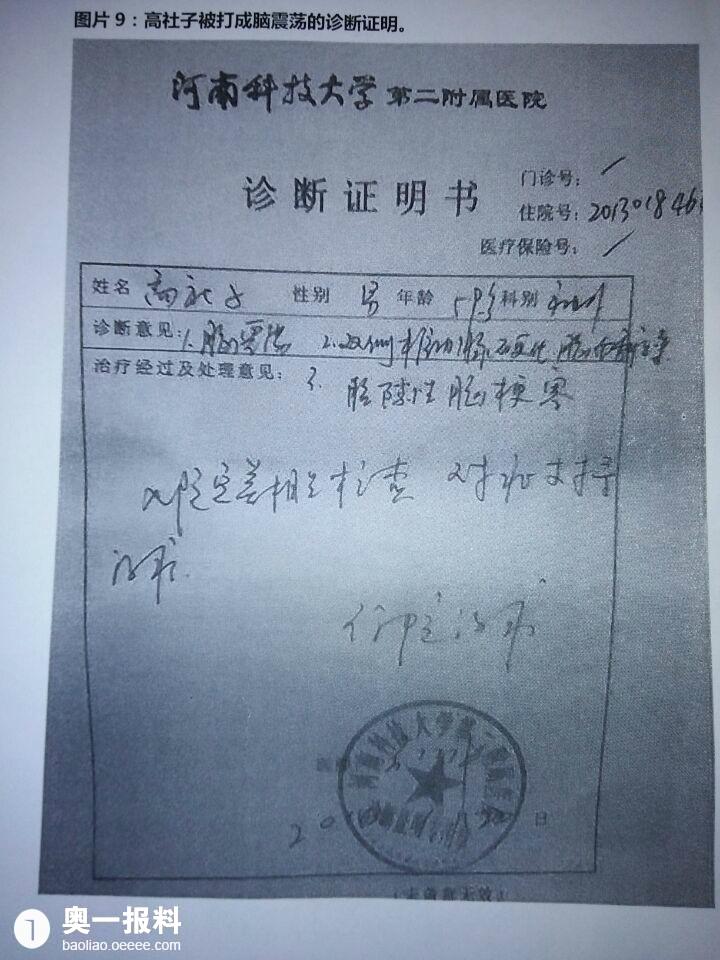 图片 9：高社子被打成脑震荡的诊断证明。
河南科技大学 第二附属医院
诊断证明书
门诊号： /
住院号：201301846
医疗保险号： /
姓名 高社子 性别 男 年龄 科别
诊断意见：1.脑震荡 2.双侧椎动脉硬化
治疗经过及处理意见： 3.
腔隙性脑梗塞
入院完善相关检查 对症支持
治疗.
住院治疗
河南科技大学第二附属医院
日
奥一报料
baoliao.oeeee.com